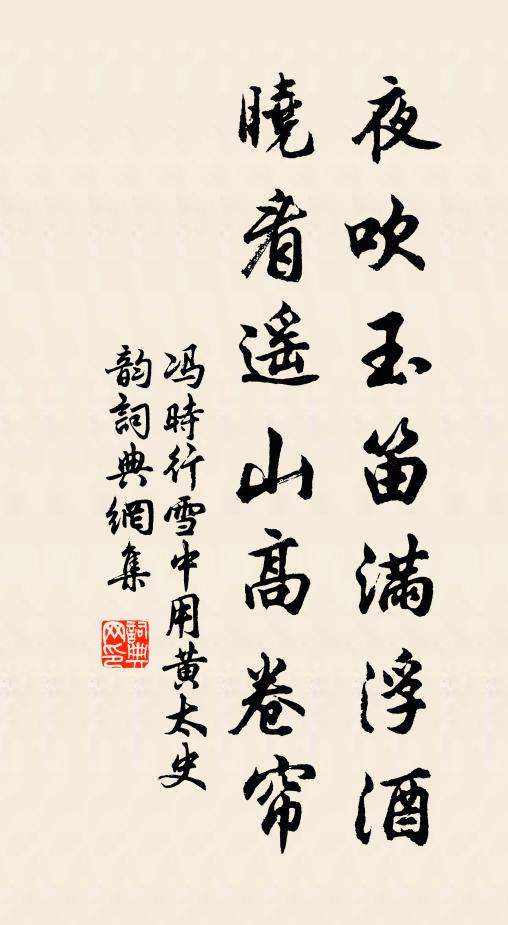 夜吹玉笛满浮酒
曉看遥山高卷帘
冯時行雪中用黄太史
韵詞典網集
詞典网印